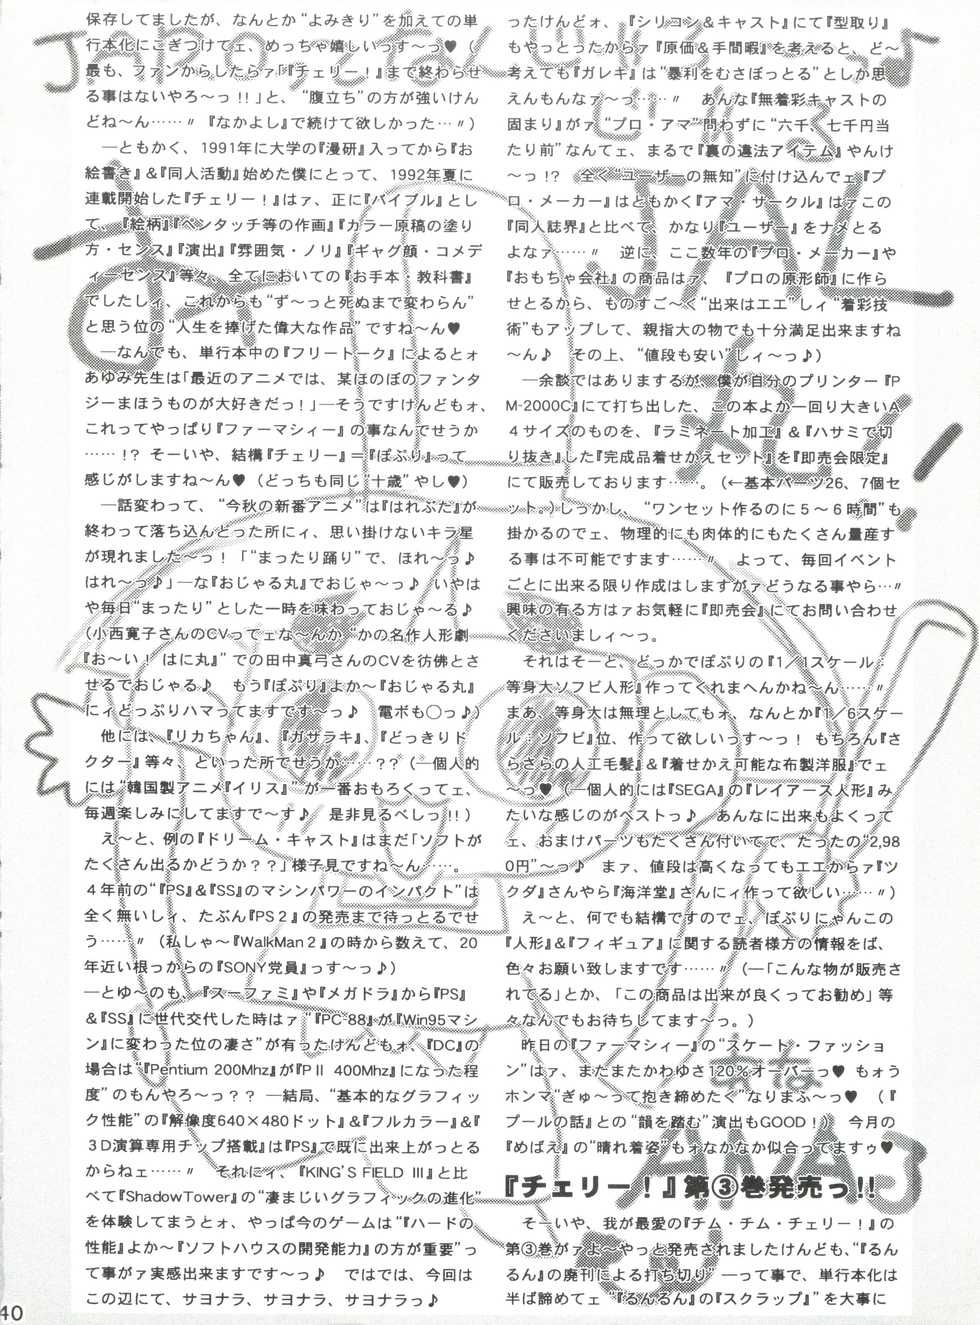 ったけんどォ、『シリコン＆キャスト』にて『型取り』
もやっとったからァ『原価＆手間暇』を考えると、ど〜
考えても『ガレキ』は“暴利をむさぼっとる”としか思
えんもんなァ〜っ……〃　あんな『無着彩キャストの
固まり』がァ“プロ・アマ”問わずに“六千、七千円当
たり前”なんてェ、まるで『裏の違法アイテム』やんけ
〜っ!?　全く“ユーザーの無知”に付け込んでェ『プ
ロ・メーカー』はともかく『アマ・サークル』はァこの
『同人誌界』と比べて、かなり『ユーザー』をナメとる
よなァ……〃　逆に、ここ数年の『プロ・メーカー』や
『おもちゃ会社』の商品はァ、『プロの原形師』に作ら
せとるから、ものすご〜く“出来はエエ”しィ“着彩技
術”もアップして、親指大の物でも十分満足出来ますね
〜ん♪　その上、“値段も安い”しィ〜っ♪）
　―余談ではありまするが、僕が自分のプリンター『P
M-2000C』にて打ち出した、この本よか一回り大きいA
４サイズのものを、『ラミネート加工』＆『ハサミで切
り抜き』した『完成品着せかえセット』を『即売会限定』
にて販売しております……。（←基本パーツ26、7個セ
ット。）しっかし、“ワンセット作るのに５〜６時間”も
掛かるのでェ、物理的にも肉体的にもたくさん量産す
る事は不可能ですます………〃　よって、毎回イベント
ごとに出来る限り作成はしますがァどうなる事やら…〃
興味の有る方はァお気軽に『即売会』にてお問い合わせ
くださいましィ〜っ。
　それはそーと、どっかでぽぷりの『１/１スケール：
等身大ソフビ人形』作ってくれまへんかね〜ん………〃
まあ、等身大は無理としてもォ、なんとか『１/６スケー
ル：ソフビ』位、作って欲しいっす〜っ！ もちろん『さ
らさらの人工毛髪』＆『着せかえ可能な布製洋服』でェ
〜っ♥（―個人的には『SEGA』の『レイアース人形』み
たいな感じのがベストっ♪　あんなに出来もよくって
ェ、おまけパーツもたくさん付いてて、たったの“2,98
0円”〜っ♪　まァ、値段は高くなってもエエからァ『ツ
クダ』さんやら『海洋堂』さんにィ作って欲しい……〃）
　え〜と、何でも結構ですのでェ、ぽぷりにゃんこの
『人形』＆『フィギュア』に関する読者様方の情報をば、
色々お願い致しますです……〃（―「こんな物が販売さ
れてる」とか、「この商品は出来が良くってお勧め」等
々なんでもお待ちしてます〜っ。）
　昨日の『ファーマシィー』の“スケート・ファッショ
ン”はァ、またまたかわゆさ120%オーバーっ♥ もォう
ホンマ“ぎゅ〜って抱き締めたく”なりまふ〜っ♥　（『
プールの話』との“韻を踏む”演出もGOOD！）　今月の
『めばえ』の“晴れ着姿”もォなかなか似合ってますゥ♥
『チェリー！』第③巻発売っ!!
　そーいや、我が最愛の『チム・チム・チェリー！』の
第③巻がァよ〜やっと発売されましたけんども、“『るん
るん』の廃刊による打ち切り”―って事で、単行本化は
半ば諦めてェ“『るんるん』の『スクラップ』”を大事に
保存してましたが、なんとか“よみきり”を加えての単
行本化にこぎつけてェ、めっちゃ嬉しいっす〜っ♥（
最も、ファンからしたらァ「『チェリー！』まで終わらせ
る事はないやろ〜っ!!」と、“腹立ち”の方が強いけん
どね〜ん……〃『なかよし』で続けて欲しかった…〃）
　―ともかく、1991年に大学の『漫研』入ってから『お
絵書き』＆『同人活動』始めた僕にとって、1992年夏に
連載開始した『チェリー！』はァ、正に『バイブル』とし
て、『絵柄』『ペンタッチ等の作画』『カラー原稿の塗り
方・センス』『演出』『雰囲気・ノリ』『ギャグ顔・コメデ
ィーセンス』等々、全てにおいての『お手本・教科書』
でしたしィ、これからも“ず〜っと死ぬまで変わらん”
と思う位の“人生を捧げた偉大な作品”ですね〜ん♥
　―なんでも、単行本中の『フリートーク』によるとォ
あゆみ先生は「最近のアニメでは、某ほのぼのファンタ
ジーまほうものが大好きだっ！」―そうですけんどもォ、
これってやっぱり『ファーマシィー』の事なんでせうか
……!? そーいや、結構『チェリー』＝『ぽぷり』って
感じがしますね〜ん♥（どっちも同じ“十歳”やし♥）
　―話変わって、“今秋の新番アニメ”は『はれぶた』が
終わって落ち込んどった所にィ、思い掛けないキラ星
が現れました〜っ！「“まったり踊り”で、ほれ〜っ♪
はれ〜っ♪」―な『おじゃる丸』でおじゃ〜っ♪ いやは
や毎日“まったり”とした一時を味わっておじゃ〜る♪
（小西寛子さんのCVってェな〜んか“かの名作人形劇
『お〜い！ はに丸』”での田中真弓さんのCVを彷彿とさ
せるでおじゃる♪　もう『ぽぷり』よか〜『おじゃる丸』
にィどっぷりハマってますです〜っ♪　電ボも◯っ♪）
　他には、『リカちゃん』、『ガサラキ』、『どっきりド
クター』等々、といった所でせうか……??（―個人的
には“韓国製アニメ『イリス』”が一番おもろくってェ、
毎週楽しみにしてますで〜す♪　是非見るべしっ!!）
　え〜と、例の『ドリーム・キャスト』はまだ「ソフトが
たくさん出るかどうか??」様子見ですね〜ん……。
４年前の“『PS』＆『SS』のマシンパワーのインパクト”は
全く無いしィ、たぶん『PS２』の発売まで待っとるでせ
う……〃（私しゃ〜『WalkMan２』の時から数えて、20
年近い根っからの『SONY党員』っす〜っ♪）
―とゆ〜のも、『スーファミ』や『メガドラ』から『PS』
＆『SS』に世代交代した時はァ“『PC-88』が『Win95マシ
ン』に変わった位の凄さ”が有ったけんどもォ、『DC』の
場合は“『Pentium 200Mhz』がァ『PⅡ 400Mhz』になった程
度”のもんやろ〜っ?? ―結局、“基本的なグラフィッ
ク性能”の『解像度640×480ドット』＆『フルカラー』＆『
３D演算専用チップ搭載』は『PS』で既に出来上がっとる
からねェ……〃　それにィ、『KING'S FIELD Ⅲ』と比
べて『ShadowTower』の“凄まじいグラフィックの進化”
を体験してまうとォ、やっぱ今のゲームは“『ハードの
性能』よか〜『ソフトハウスの開発能力』の方が重要”っ
て事がァ実感出来ますです〜っ♪　ではでは、今回は
この辺にて、サヨナラ、サヨナラ、サヨナラっ♪
40